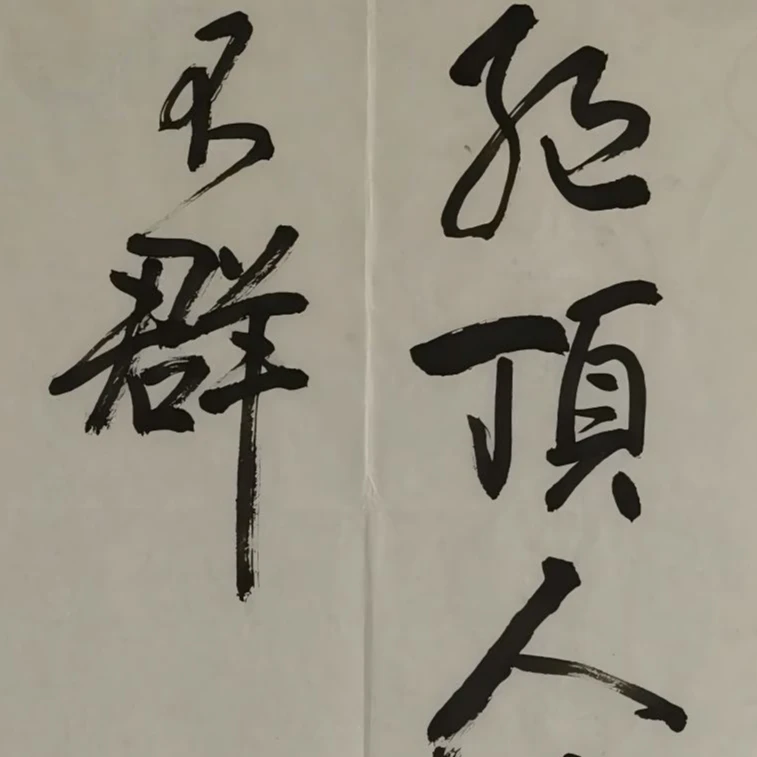 絕頂人
不群